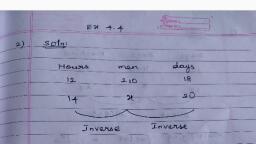 Ex 4.4
2) Soln:
Hours men days
12 210 18
14 x 20
Inverse Inverse